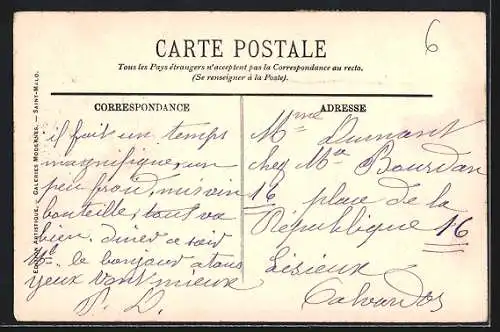 6
CARTE POSTALE
Tous les Pays étrangers n'acceptent pas la Correspondance au recto.
(Se renseigner à la Poste).
CORRESPONDANCE
il fait un temps
magnifique, un
peu froid,
bouteille, tout va
bien. diner ce soir
le bonjour a tous
yeux vont mieux
ADRESSE
Mme Dumant
chez Ma Bourdan
16 place de la
République 16
Lisieux
Calvados
ÉDITION ARTISTIQUE. - GALERIES MODERNES. - SAINT-MALO.